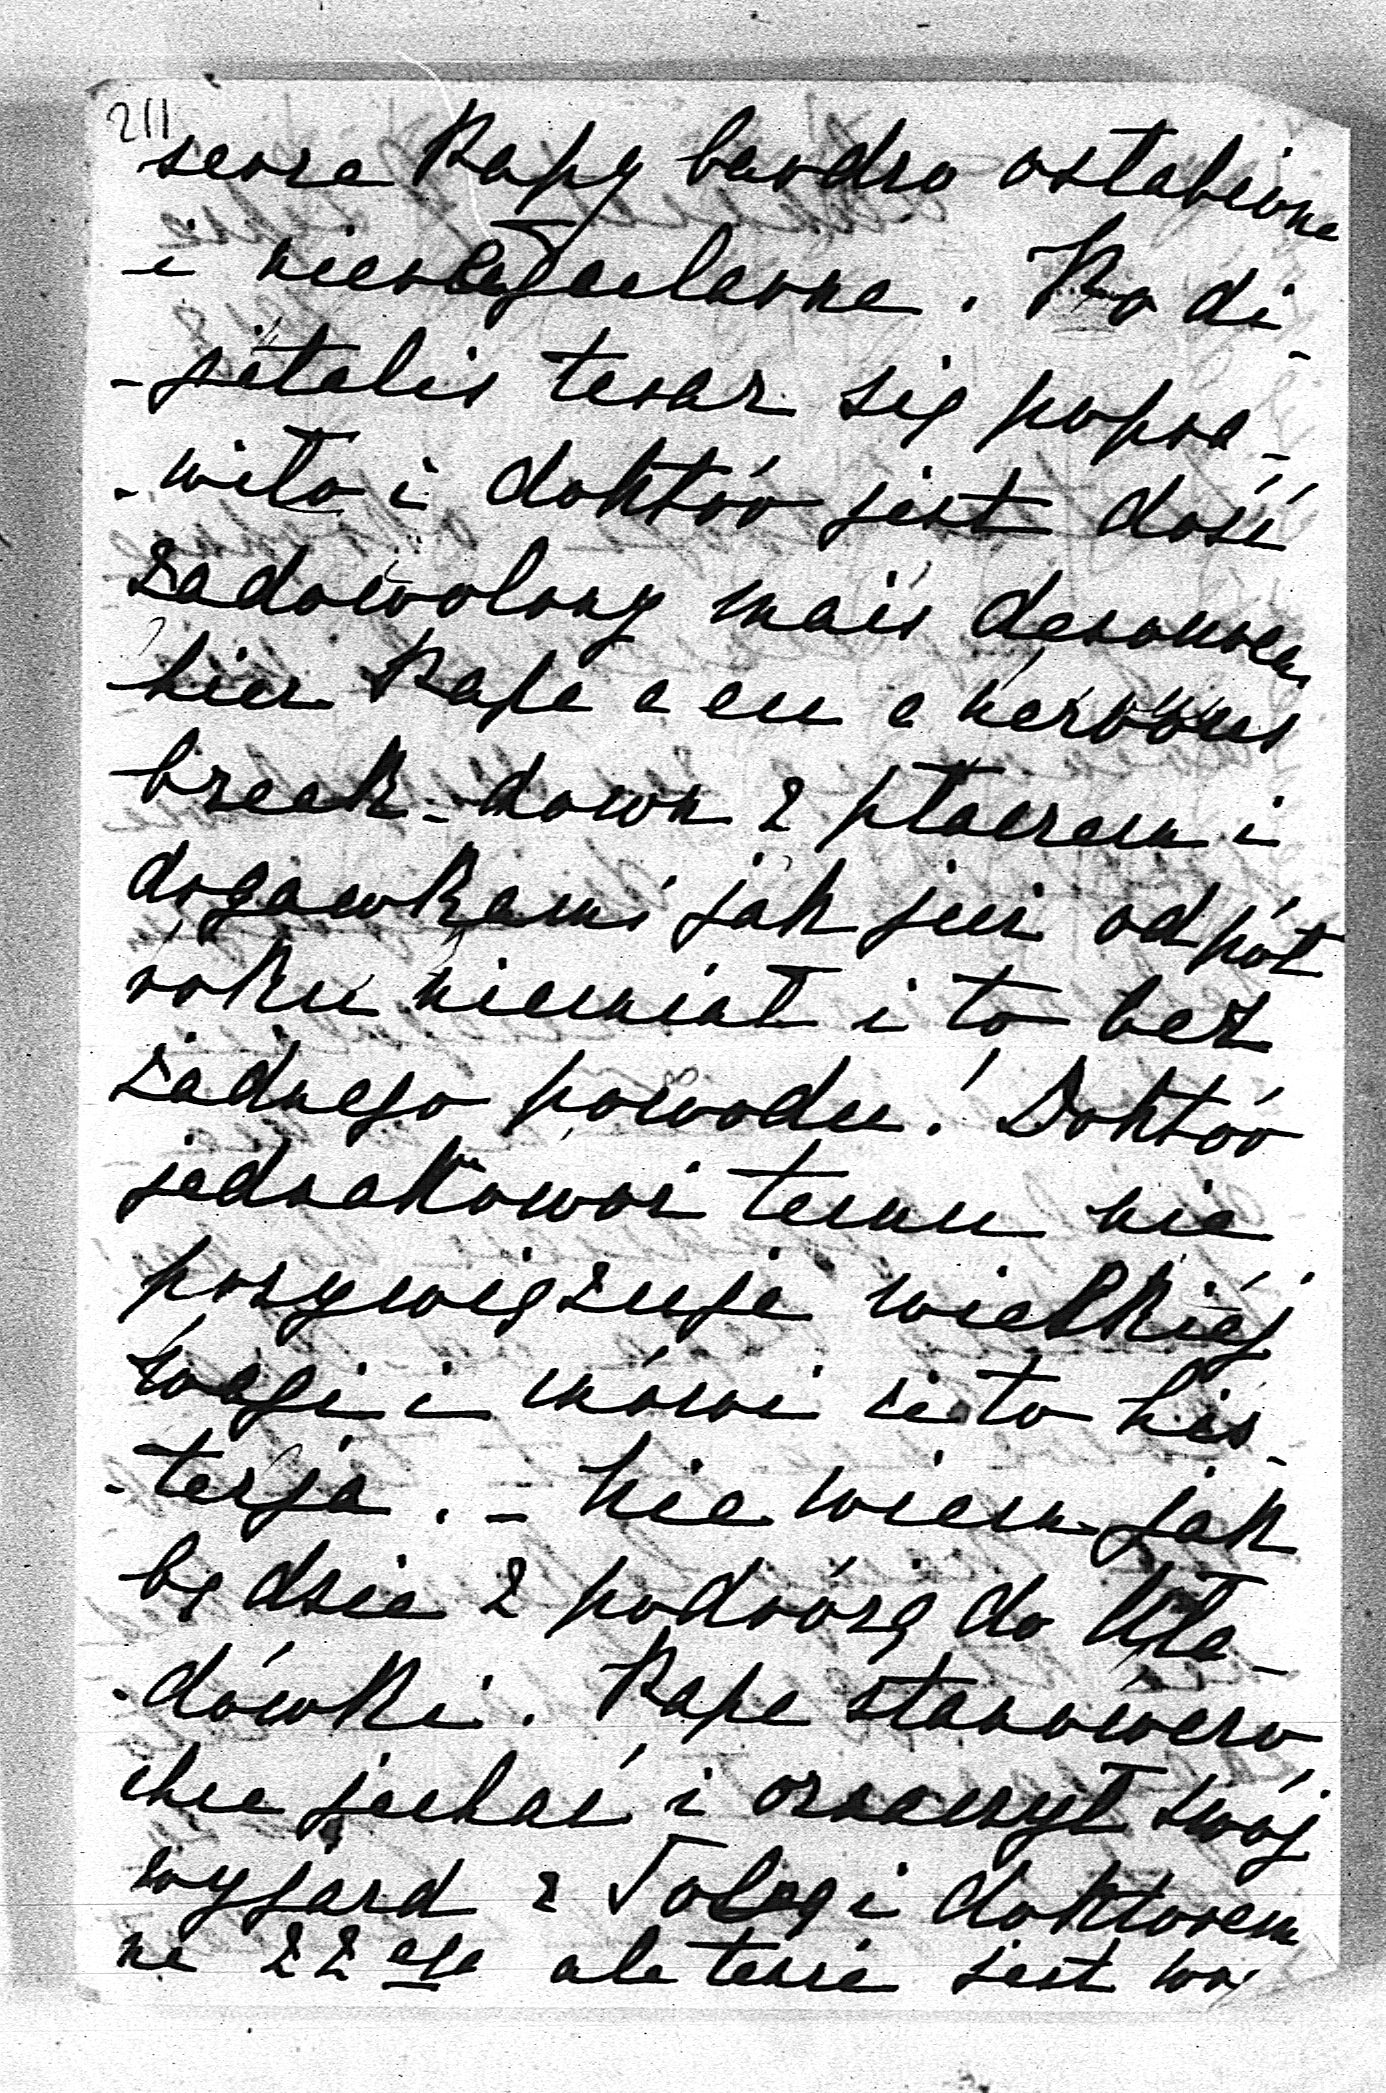 211
serce Papy bardzo osłabione
i nieregularne. Po di-
-gitalis teraz się popra-
-wiło i doktór jest dość
zadowolony mais dennoch
hier Papa a eu a nervous
break-down z płaczem i
drgawkami jak już od pół
roku niemiał i to bez
żadnego powodu! Doktór
jednakowoż temu nie
przywięzuje wielkiéj
wagi i mówi że to his-
-terja. – Nie wiem jak
będzie z podróżą do Uła-
-dówki. Papa stanowczo
chce jechać i oznaczył swój
wyjazd z i doktorem
na 22ego ale teraz jest